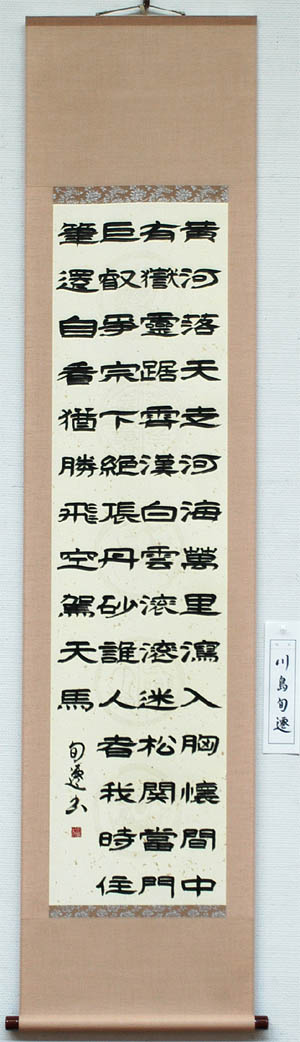 黄河落天走河海萬里瀉入胸懷間中
有嶽靈踞雲漢白雲滚滚迷松関當門
巨叡爭宗下絶張丹砂誰人者我時住
筆還自看猶勝飛空駕天馬
旬邊
川島旬邊